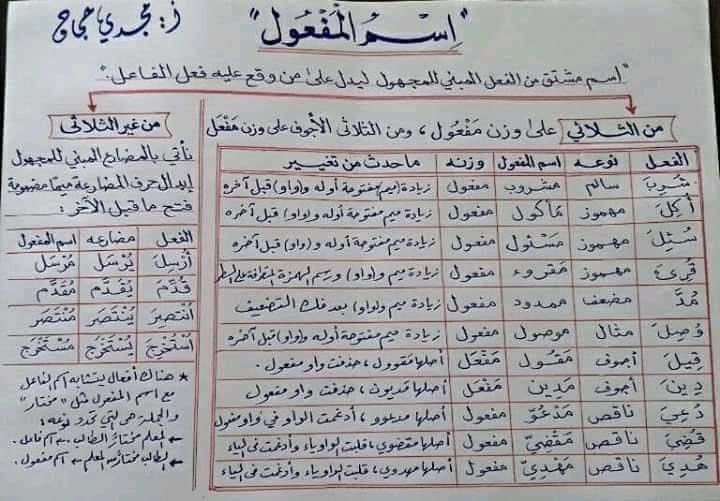 أ: مجدي حجاج
"اِسْمُ الْمَفْعُولِ"
"اسم مشتق من الفعل المبني للمجهول ليدل على من وقع عليه فعل الفاعل."
من الثلاثي على وزن مَفْعُول، ومن الثلاثي الأجوف على وزن مَفْعَل
الفعل نوعه اسم المفعول وزنه ما حدث من تغيير
شُرِبَ سالم مشروب مفعول زيادة (ميم) مفتوحة أوله و(واو) قبل آخره
أُكِلَ مهموز مأكول مفعول زيادة ميم مفتوحة أوله و(واو) قبل آخره
سُئِلَ مهموز مَسْئول مفعول زيادة ميم مفتوحة أوله و(واو) قبل آخره
قُرِئَ مهموز مقروء مفعول زيادة (ميم و(واو) ورسم الهمزة المتطرفة على السطر
مُدَّ مضعف ممدود مفعول زيادة ميم و(واو) بعد فك التضعيف
وُصِلَ مثال موصول مفعول زيادة ميم مفتوحة أوله و(واو) قبل آخره
قِيلَ أجوف مَقُول مَفْعَل أصلها مقوول، حذفت واو مفعول.
دِينَ أجوف مَدِين مَفْعَل أصلها مديون، حذفت واو مفعول
دُعِيَ ناقص مَدْعُوّ مفعول أصلها مدعوو، أدغمت الواو في واو مفعول
قُضِيَ ناقص مَقْضِيّ مفعول أصلها مقضوي، قلبت الواو ياء وأدغمت في الياء
هُدِيَ ناقص مَهْدِيّ مفعول أصلها مهدوي، قلبت الواو ياء وأدغمت في الياء
من غير الثلاثى
نأتي بالمضارع المبني للمجهول
إبدال حرف المضارعة ميمًا مضمومة
فتح ما قبل الآخر:
الفعل مضارعه اسم المفعول
أُرْسِلَ يُرْسَل مُرْسَل
قُدِّمَ يُقَدَّم مُقَدَّم
انْتُصِرَ يُنْتَصَر مُنْتَصَر
اسْتُخْرِجَ يُسْتَخْرَج مُسْتَخْرَج
* هناك أفعال يتشابه اسم الفاعل
مع اسم المفعول مثل "مختار"
والجملة هى التي تحدد نوعه:
المعلم مختارٌ الطالبَ ← اسم فاعل.
الطالب مختارٌ معلم ← اسم مفعول.